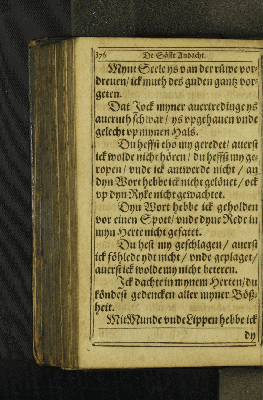 376 De Söste Andacht.
Myne Seele ys van der rüwe vor-
dreuen/ ick muth des guden gantz vor-
geten.
Dat Jock myner auertredinge ys
aueruth schwar/ ys vpgehauen vnde
gelecht vp mynen Hals.
Du heffst tho my geredet/ auerst
ick wolde nicht hören/ du heffst my ge-
ropen/ vnde ick antwerde nicht/ an
dyn Wort hebbe ick nicht gelöuet/ ock
vp dyn Ryke nicht gewachtet.
Dyn Wort hebbe ick geholden
vor einen Spott/ vnde dyne Rede in
myn Herte nicht gefatet.
Du hest my geschlagen/ auerst
ick föhlede ydt nicht/ vnde geplaget/
auerst ick wolde my nicht beteren.
Jck dachte in mynem Herten/ du
köndest gedencken aller myner Böß-
heit.
Mit Munde vnde Lippen hebbe ick
dy